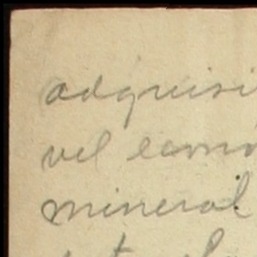 adquisi
vel econo
mineral